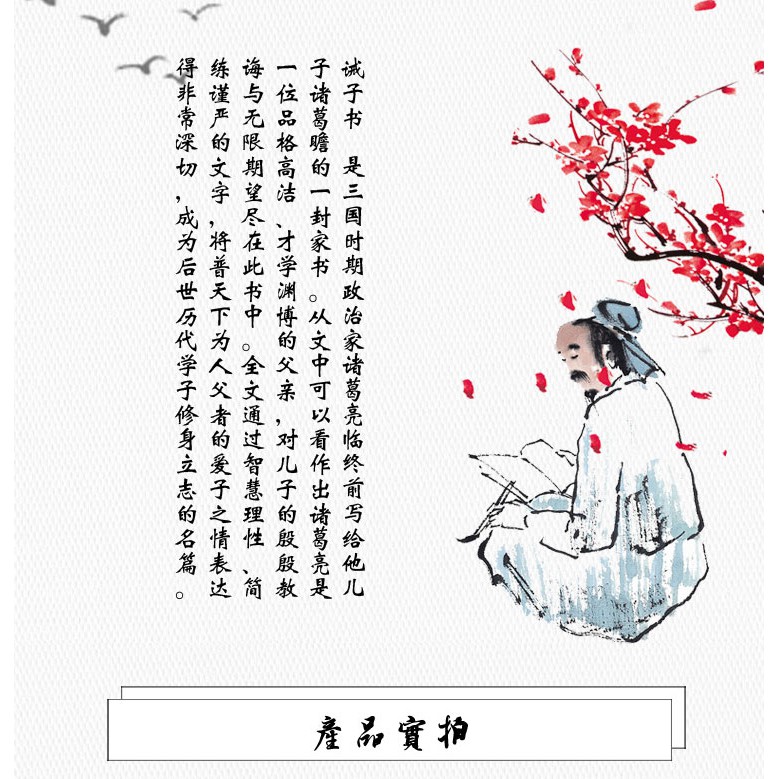 诫子书 是三国时期政治家诸葛亮临终前写给他儿
子诸葛瞻的一封家书。从文中可以看作出诸葛亮是
一位品格高洁、才学渊博的父亲,对儿子的殷殷教
诲与无限期望尽在此书中。全文通过智慧理性、简
练谨严的文字,将普天下为人父者的爱子之情表达
得非常深切,成为后世历代学子修身立志的名篇。
產品實拍